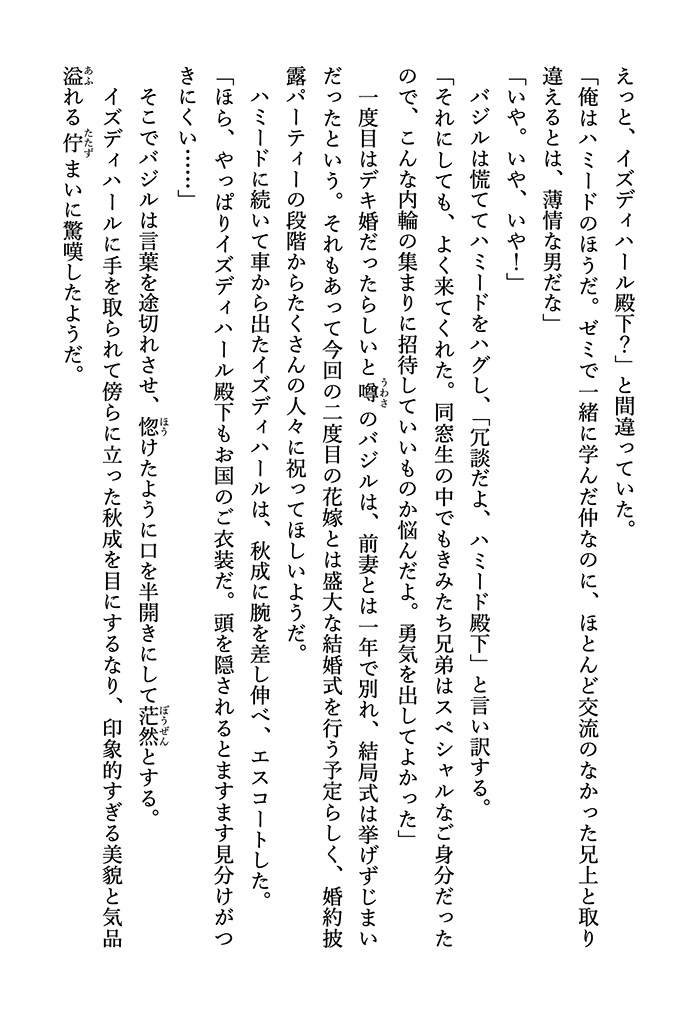 えっと、イズディハール殿下？」と間違っていた。
「俺はハミードのほうだ。ゼミで一緒に学んだ仲なのに、ほとんど交流のなかった兄上と取り
違えるとは、薄情な男だな」
「いや。いや、いや！」
バジルは慌ててハミードをハグし、「冗談だよ、ハミード殿下」と言い訳する。
「それにしても、よく来てくれた。同窓生の中でもきみたち兄弟はスペシャルなご身分だった
ので、こんな内輪の集まりに招待していいものか悩んだよ。勇気を出してよかった」
一度目はデキ婚だったらしいと噂のバジルは、前妻とは一年で別れ、結局式は挙げずじまい
だったという。それもあって今回の二度目の花嫁とは盛大な結婚式を行う予定らしく、婚約披
露パーティーの段階からたくさんの人々に祝ってほしいようだ。
ハミードに続いて車から出たイズディハールは、秋成に腕を差し伸べ、エスコートした。
「ほら、やっぱりイズディハール殿下もお国のご衣装だ。頭を隠されるとますます見分けがつ
きにくい……」
そこでバジルは言葉を途切れさせ、惚けたように口を半開きにして茫然とする。
イズディハールに手を取られて傍らに立った秋成を目にするなり、印象的すぎる美貌と気品
溢れる佇まいに驚嘆したようだ。